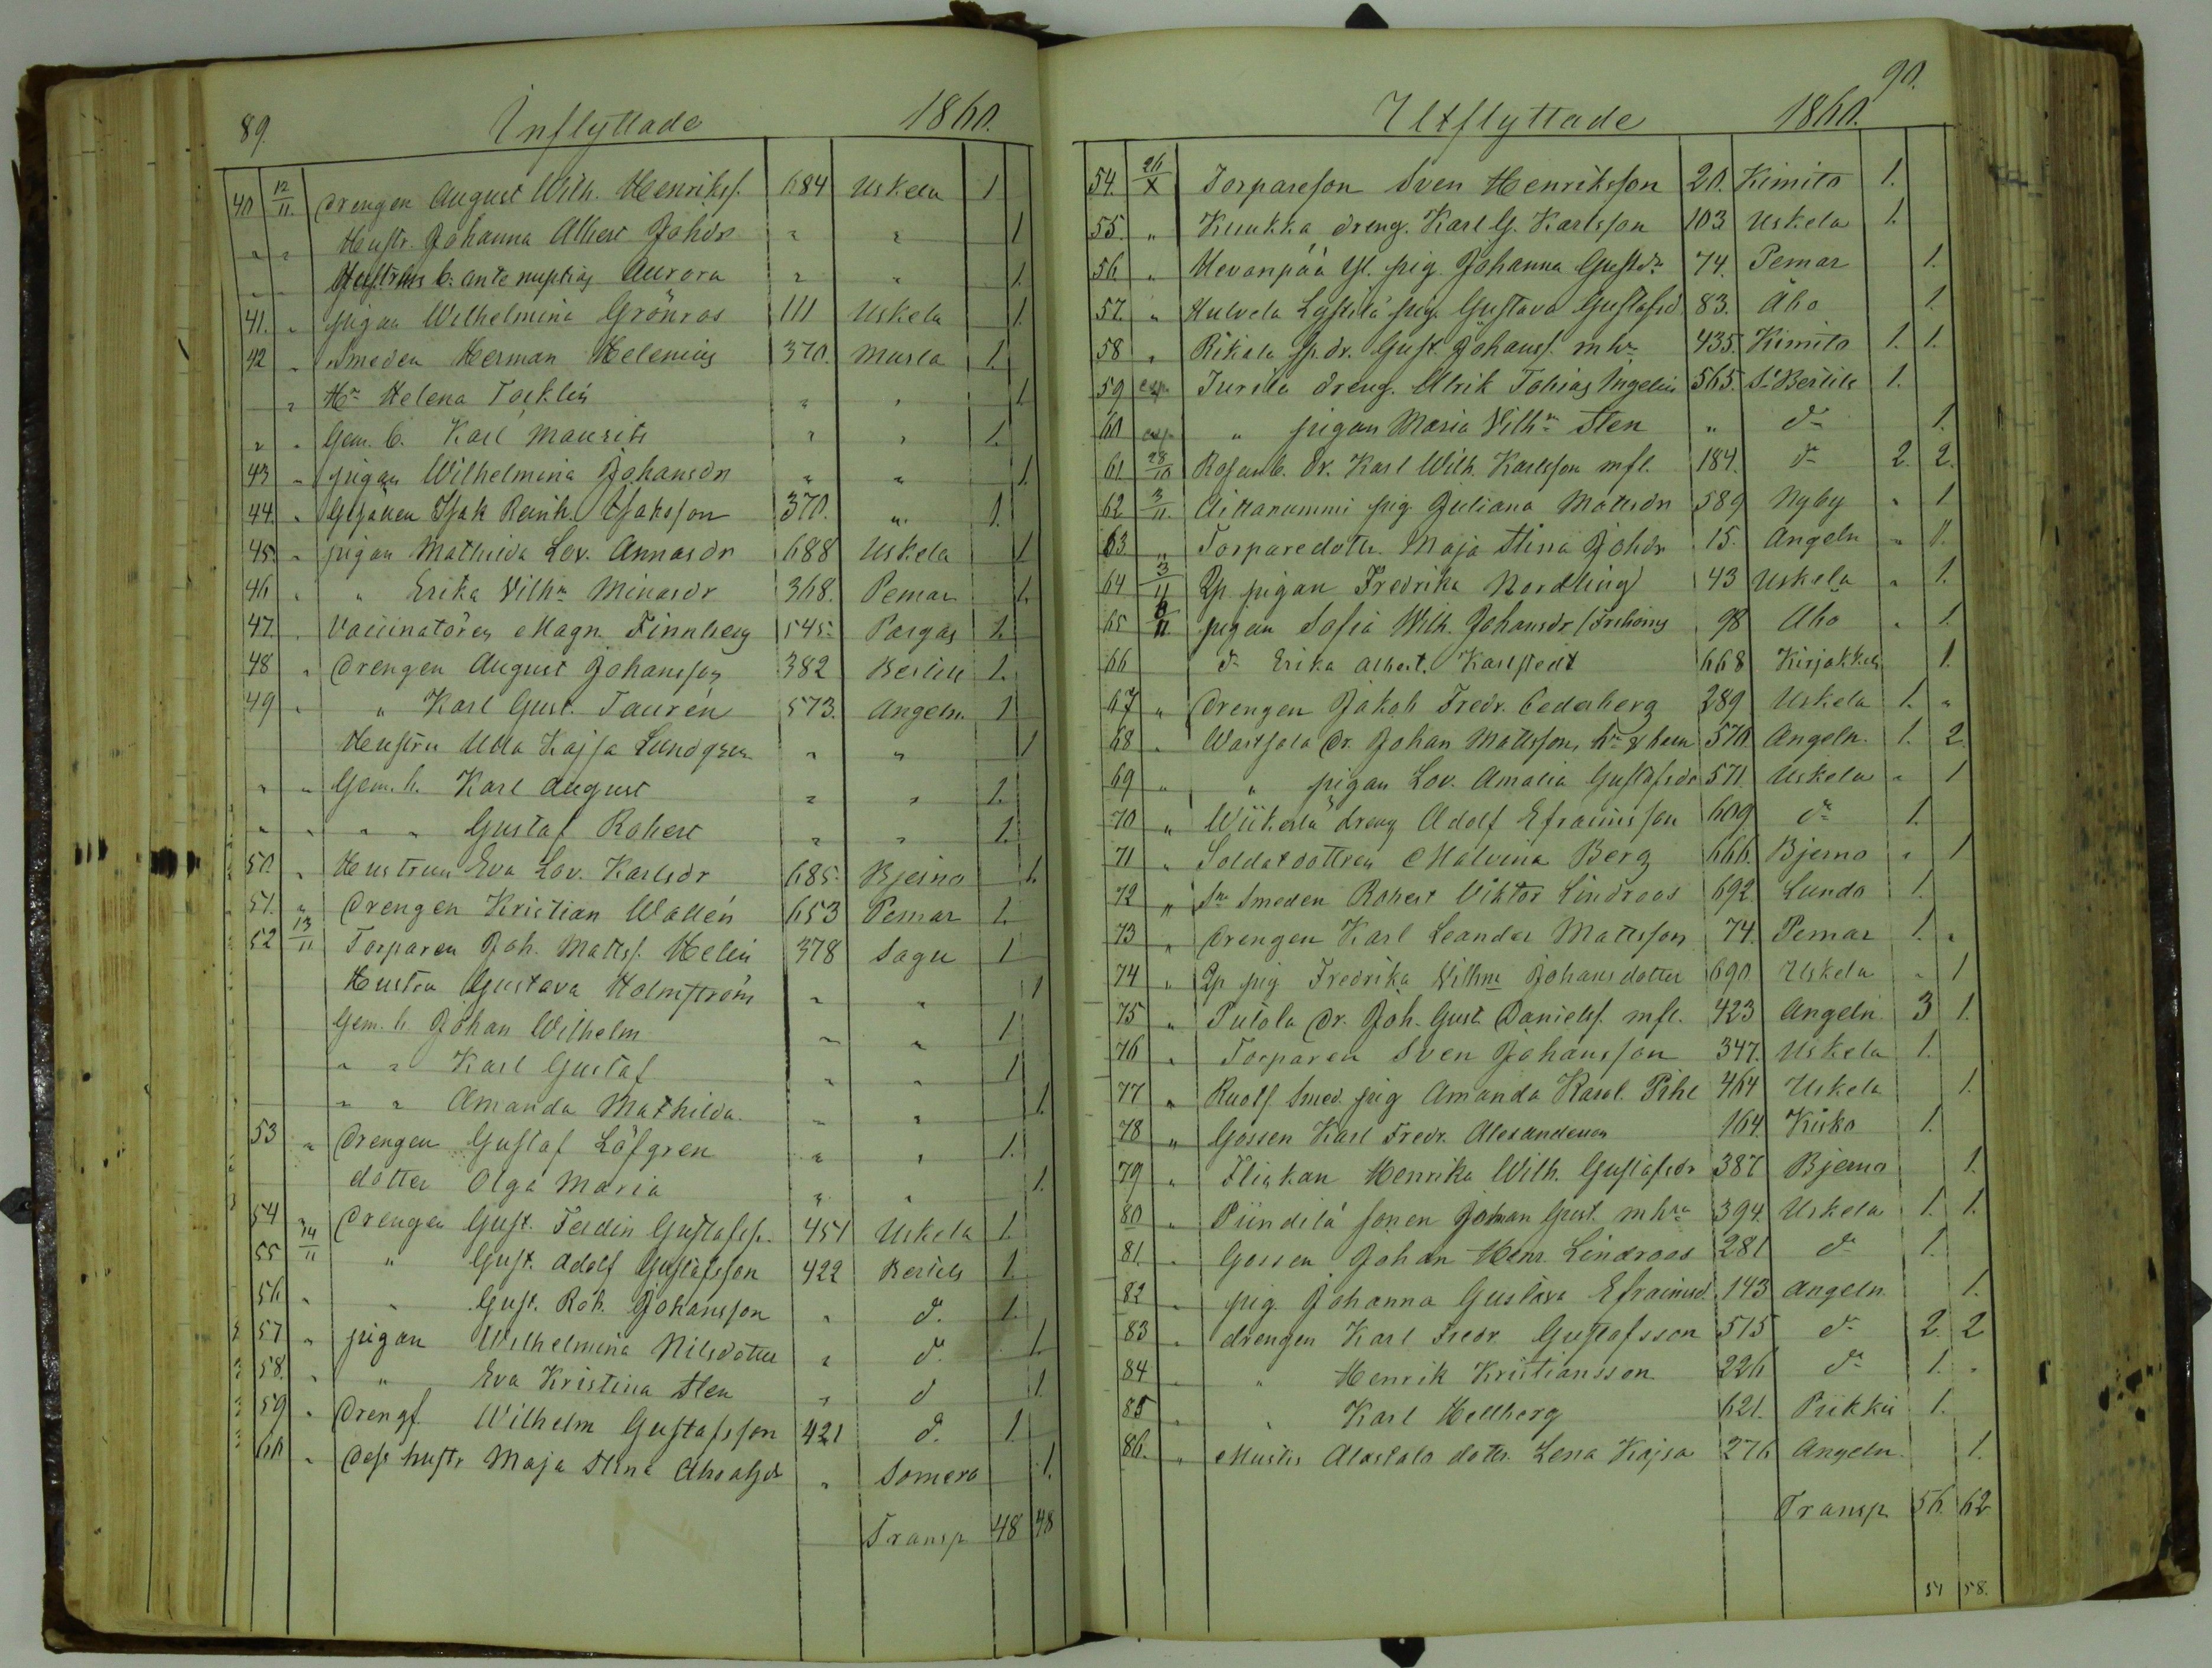 89. Inflyttade 1860.
40 12/11. Drengen August Wilh. Henrikss. 684 Uskela 1
" " Hustr. Johanna Albert. Johdr " " 1
" " Hustrus b. ante nuptias Aurora " " 1.
41. " pigan Wilhelmina Grönros 111 Uskela 1.
42 " Smeden Herman Helenius 370. Murla 1.
" Hu Helena Tocklin " " 1.
" " Gem. b. Karl Maurits " " 1.
43 " pigan Wilhelmina Johansdr " " 1.
44. " Gesällen Isak Reinh. Isaksson 370. " 1.
45. " pigan Mathilda Lov. Annasdr 688 Uskela 1
46 " " Erika Vilhna Minasdr 368. Pemar 1.
47. " Vaccinatören Magn. Finnberg 545. Pargas 1.
48 " Drengen August Johansson 382 Bertils 1.
49 " " Karl Gust. Taurén 573. Angeln. 1
Hustru Ulla Kajsa Lundgren " " 1
" " Gem. b. Karl August " " 1.
" " " " Gustaf Robert " " 1.
50. " Hustrun Eva Lov. Karlsdr 685. Bjerno 1.
51. " Drengen Kristian Wallén 653 Pemar 1.
52 13/11 Torparen Joh. Matts. Helin 378 Sagu 1
Hustru Gustava Holmström " " 1
Gem. b. Johan Wilhelm " " 1
" " Karl Gustaf " " 1
" " Amanda Mathilda. " " 1.
53 " Drengen Gustaf Löfgren " " 1.
dotter Olga Maria " " 1.
54 " Drengen Gust. Ferdin Gustafss. 451 Uskela 1.
55 14/11 " Gust. Adolf Gustafsson 422 Bertils 1.
56 " " Gust. Rob. Johansson " d. 1.
57 " pigan Wilhelmina Nilsdotter " d. 1.
58. " " Eva Kristina Sten " d 1.
59 " Drengf. Wilhelm Gustafsson 421 d. 1.
60 " Dess hustr Maja Stina " Somero 1.
Transp 48 48
90.
Utflyttade 1860.
54. 26/X Torpareson Sven Henriksson 20. Kimito 1.
55. " Kuukka dreng. Karl G. Karlsson 103 Uskela 1.
56 " Hevonpää Yl. pig. Johanna Gustdr 74. Pemar 1.
57. " Hulvela pig. Gustava Gustafsd 83. Åbo 1.
58 " Rikala sp. dr. Gust. Johanss. mhu 435. Kimito 1. 1.
59 exp. Jurila dreng. Ulrik Tobias Ingelin 565. St Bertils 1.
60 exp. " pigan Maria Vilhna Sten " do 1.
61. 28/10 Rosenb. dr. Karl Wilh. Karlsson mfl. 184. do 2. 2.
62 3/11. Aittanummi pig. Juliana Mattsdr 589 Nyby " 1
63 " Torparedottr. Maja Stina Johdr 15. Angeln " 1.
64 3/11 Qp pigan Fredrika Nordling 43 Uskela " 1.
65 6/11. pigan Sofia Wilh. Johansdr 98 Åbo " 1.
66 do Erika Albert. Karlstedt 668 Kirjakkala 1.
67 " Drengen Jakob Fredr. Cederberg 289 Uskela 1. "
68 " Wartsala Dr. Johan Mattsson, hu & barn 570 Angeln. 1. 2.
69 " " pigan Lov. Amalia Gustafsdr 571. Uskela " 1
70 " Wiikerla dreng Adolf Efraimsson 609 do 1.
71 " Soldatdottren Malvina Berg 666. Bjerno " 1
72 " Sn Smeden Robert Viktor Lindroos 692. Lundo 1.
73 " Drengen Karl Leander Mattsson 74. Pemar 1. "
74 " Qp pig Fredrika Vilhna Johansdotter 690 Uskela " 1
75 " Pulola Dr. Joh. Gust. Daniels. mfl. 423 Angeln. 3 1.
76 " Torparen Sven Johansson 347. Uskela 1.
77 " Ruots. Smed. pig Amanda Karol. Pihl 464 Uskela 1.
78 " Gossen Karl Fredr. Alexandersson 164. Kisko 1.
79 " Flickan Henrika Wilh. Gustafsdr 387 Bjerno 1.
80 " Piindilä sonen Johan Gust. mhu 394. Uskela 1. 1.
81. " Gossen Johan Henr. Lindroos 281 do 1.
82 " pig. Johanna Gustava Efraimsd. 143 Angeln. 1.
83 " drengen Karl Fredr. Gustafsson 515 do 2. 2
84 " " Henrik Kristiansson 226 do 1. "
85 " " Karl Hellberg 621. Piikkii 1.
86. " Mustis Alastalo dottr. Lena Kajsa 276 Angeln. 1.
Transp 56. 62
51 58.